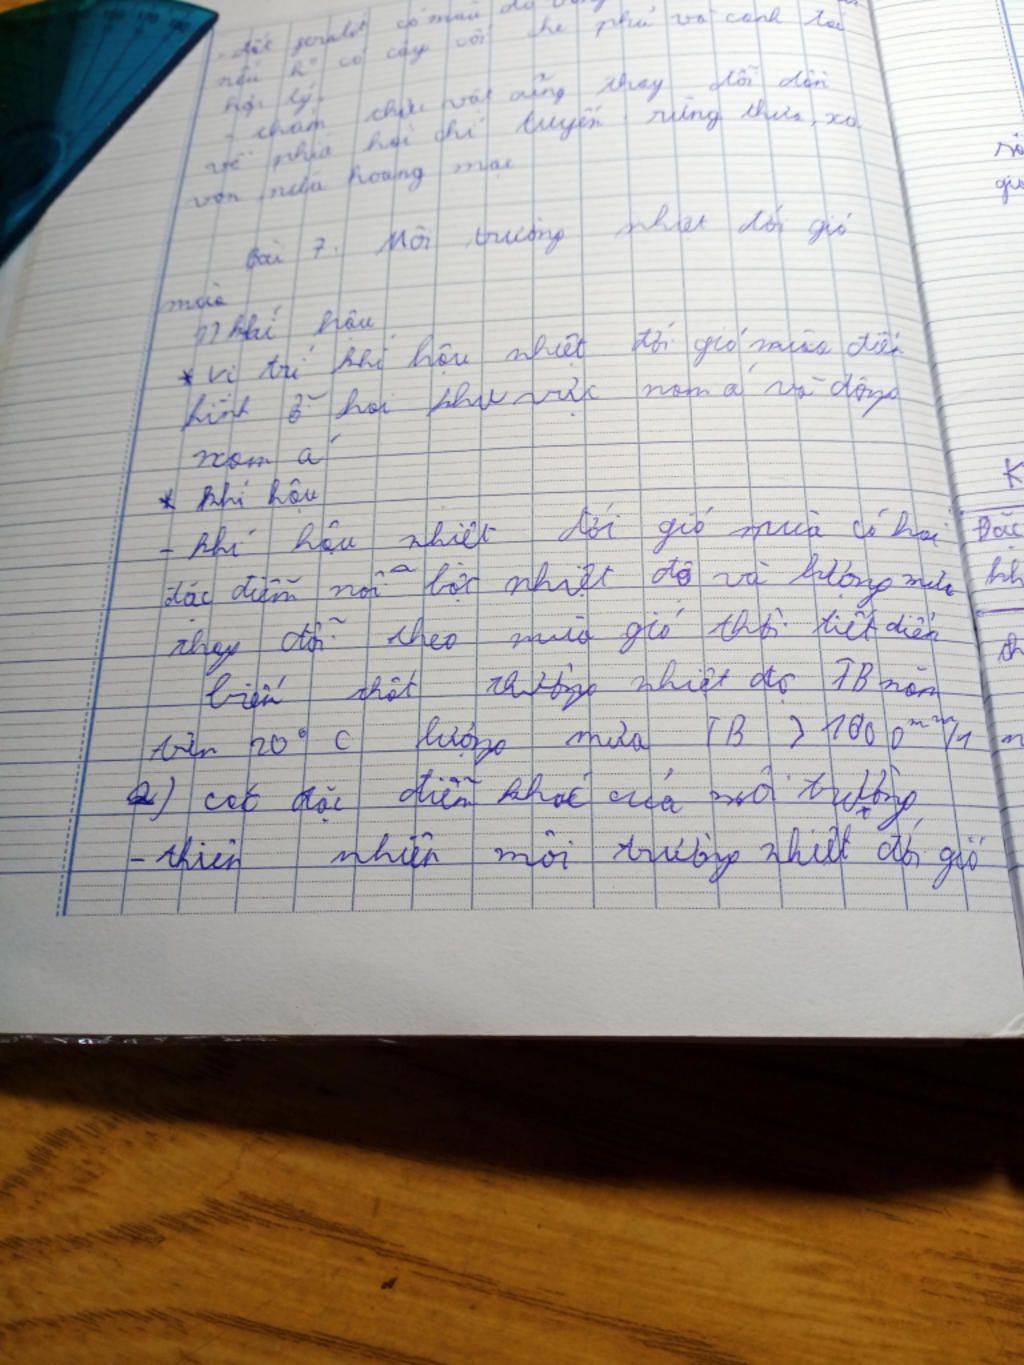 - đất feralit có màu đỏ vàng
nếu k° có cây cối che phủ và canh tác
hợp lý.
- thảm thực vật cũng thay đổi dần
về phía hai chí tuyến. rừng thưa, xa
van, nửa hoang mạc
Bài 7. Môi trường nhiệt đới gió
mùa
1) khí hậu
* vị trí khí hậu nhiệt đới gió mùa điển
hình ở hai khu vực nam á và đông
nam á
* khí hậu
- khí hậu nhiệt đới gió mùa có hai
đặc điểm nổi bật nhiệt độ và lượng mưa
thay đổi theo mùa gió thời tiết diễn
biến thất thường nhiệt độ TB năm
trên 20° C lượng mưa TB > 1000mm/1
2) các đặc điểm khác của môi trường
- thiên nhiên môi trường nhiệt đới gió
K
Đặc
kh